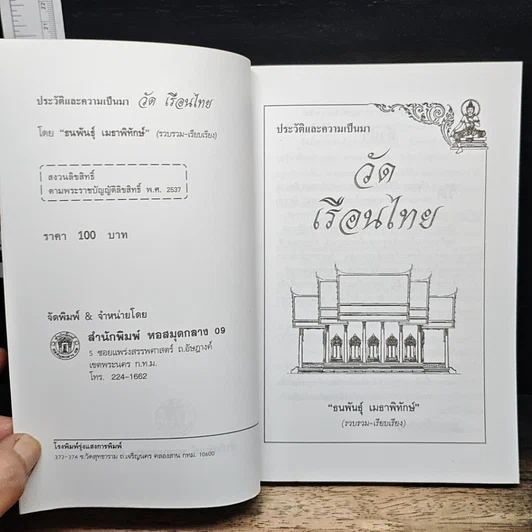 ประวัติและความเป็นมา วัด เรือนไทย
โดย "ธนพันธุ์ เมธาพิทักษ์" (รวบรวม-เรียบเรียง)
สงวนลิขสิทธิ์
ตามพระราชบัญญัติลิขสิทธิ์ พ.ศ. 2537
ราคา 100 บาท
จัดพิมพ์ & จำหน่ายโดย
สำนักพิมพ์ หอสมุดกลาง 09
5 ซอยแพร่งสรรพศาสตร์ ถ.อัษฎางค์
เขตพระนคร ก.ท.ม.
โทร. 224-1662
โรงพิมพ์รุ่งแสงการพิมพ์
373-374 ซ.วัดสุทธาราม ถ.เจริญนคร คลองสาน กทม. 10600
ประวัติและความเป็นมา
วัด
เรือนไทย
"ธนพันธุ์ เมธาพิทักษ์"
(รวบรวม-เรียบเรียง)